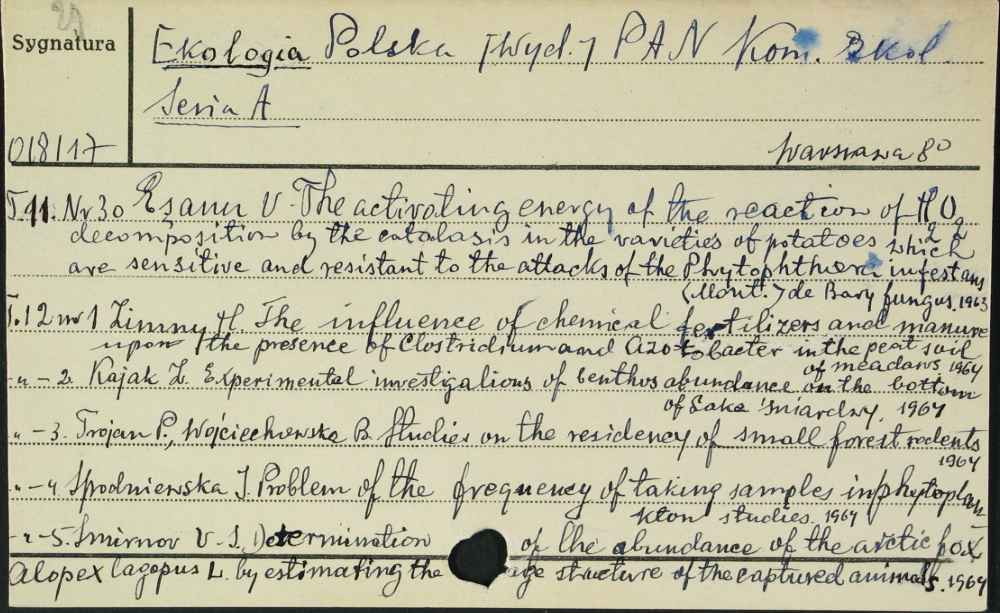 29
Sygnatura
Ekologia Polska [Wyd.] PAN Kom. Ekol.
Seria A
018/17
Warszawa 8°
T 11. Nr 30 Eşanu V. The activating energy of the reaction of H2O2
decomposition by the catalasis in the varieties of potatoes which
are sensitive and resistant to the attacks of the Phytophthora infestans
(Mont.) de Bary fungus. 1963
T. 12 nr 1 Zimny H. The influence of chemical fertilizers and manure
upon the presence of Clostridium and Azotobacter in the peat soil
of meadows 1964
-„- 2. Kajak Z. Experimental investigations of benthos abundance on the bottom
of Lake Śniardwy. 1964
-„- 3. Trojan P., Wojciechowska B. Studies on the residency of small forest rodents
1964
-„- 4 Spodniewska J. Problem of the frequency of taking samples in phytoplan-
kton studies. 1964
-„- 5. Smirnov V. S. Determination of the abundance of the arctic fox
Alopex lagopus L. by estimating the age structure of the captured animals. 1964